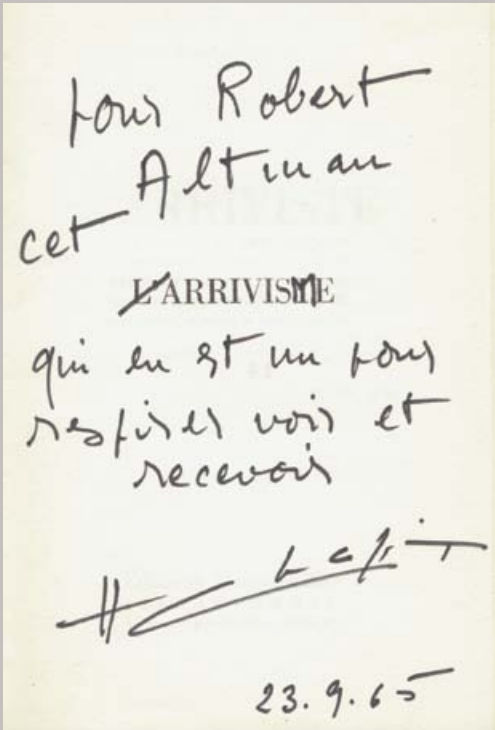 pour Robert
Altman
cet
L'ARRIVISME
qui en est un pour
respirer voir et
recevoir
23.9.65